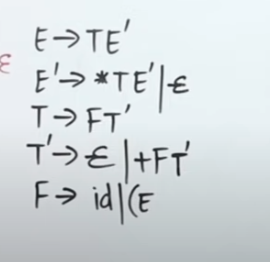 ε E→TE'
E'→*TE'|ε
T→FT'
T'→ε|+FT'
F→ id|(E